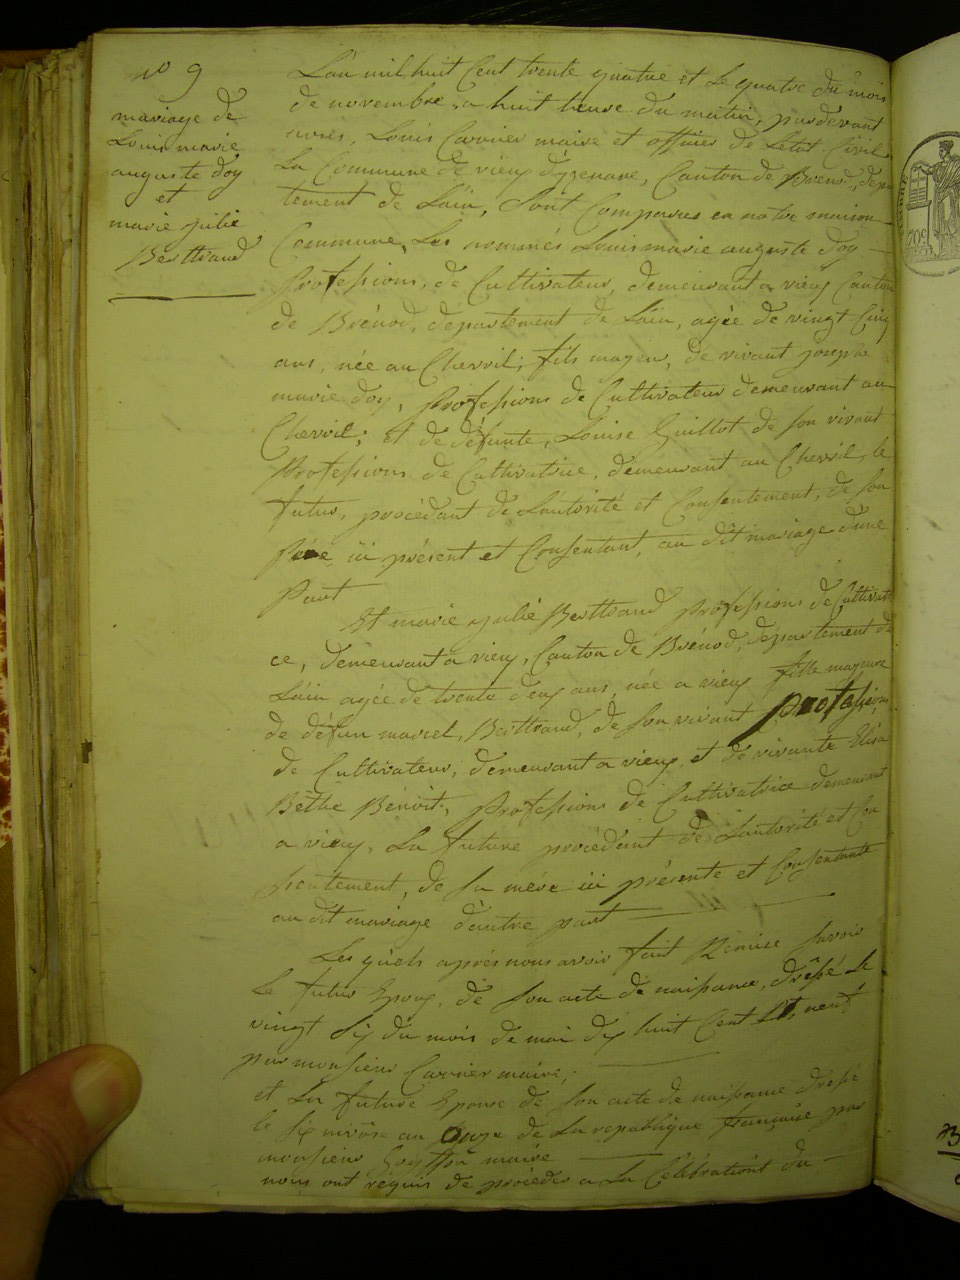 n° 9
mariage de
Louis marie
auguste doy
et
marie julie
Berttrand
L'an mil huit Cent trente quatre et le quatre du mois
de novembre, a huit heure du matin, pardevant
nous, Louis Carrier maire et officier de Letat Civil
La Commune de vieux dizenave, Canton de Brenod, depar
tement de Lain, Sont Comparus en notre maison
Commune, Les nommés Louis marie auguste doy
Professions, de Cultivateur, demeurant a vieux Canton
de Brénod, département de Lain, agée de vingt Cinq
ans, née au Chevril; fils mageur, de vivant joseph
marie doy, professions de Cultivateur demeurant au
Chevril; et de défunte, Louise Guillot de son vivant
Professions de Cultivatrice, demeurant au Chevril, le
futur, procédant de Lautorité et Consentement, de son
père, ici présent et Consentant, au dit mariage d'une
Part
Et marie julie Berttrand professions de Cultivatri
ce, demeurant a vieux, Canton de Brénod, département de
Lain agée de trente deux ans, née a vieux fille mageure
de défun marcel, Berttrand, de son vivant profession
de Cultivateur, demeurant a vieux, et de vivante Elisa
Bethe Benoit, Professions de Cultivatrice demeurant
a vieux, La future procédant de Lautorité et Con
sentement, de sa mère ici présente et Consentante
au dit mariage d'autre part
Les quels après nous avoir fait Remise Savoir
Le futur Epoux, de Son acte de naissance, dressé le
vingt Six du mois de mai dix huit Cent neuf
par monsieur Carrier maire;
et La future Epouse de Son acte de naissance dressé
le Six nivôse an Onze de La republique française par
monsieur maire
nous ont requis de procéder a La Célébrations du
70c